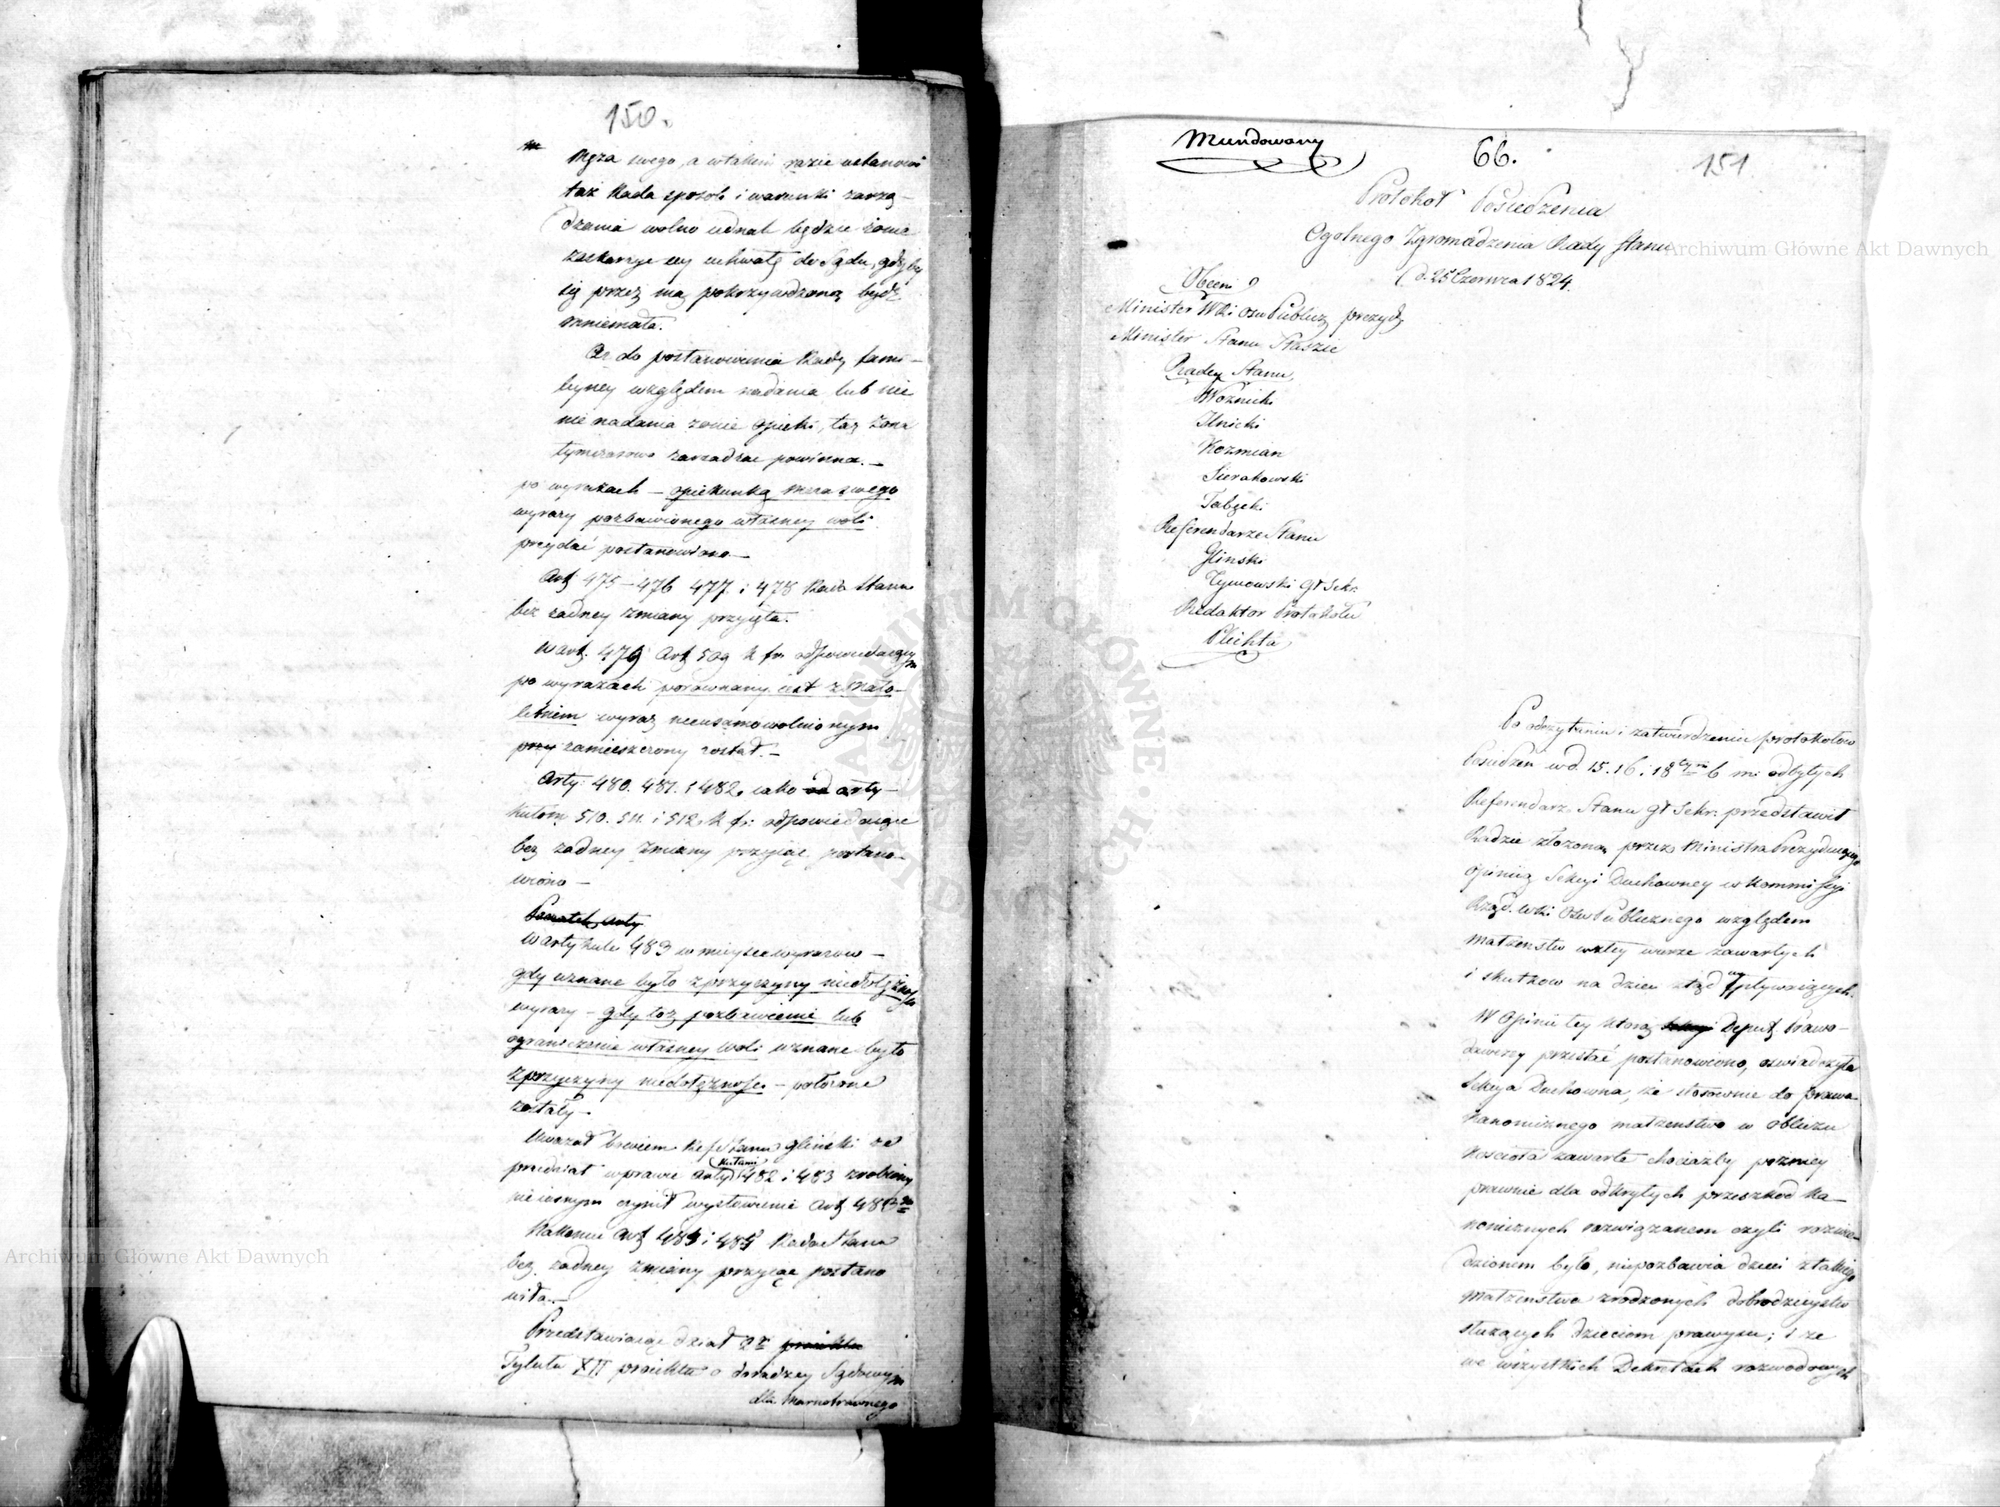 150.
Męża swego, a w takim razie ustanowi
taż Rada sposób i warunki zarzą-
dzania wolno udnak będzie żonie
zaskarżyć uchwałę do Sądu, gdyby
się przez nią pokrzywdzoną bydź
mniemała.
Aż do postanowienia Rady fami-
lyney względem nadania lub nie
nie nadania żonie opieki, taż żona
tymczasowo zarządzać powinna. –
po wyrazach – opiekunką męża swego
wyrazy pozbawionego własney woli
przydać postanowiono –
Art. 475 – 476 477. i 478 Rada Stanu
bez żadney zmiany przyięta.
W art. 479 Art 509 K fr. odpowiadaiącym
po wyrazach porównany iest z mało-
letnim wyraz nieusamowolnionym
przy zamieszczony został. –
Arty. 480. 481. i 482. iako od arty-
kułom 510. 511. i 512. K fr: odpowiedaiące
bez żadney zmiany przyiąć postano-
wiono –
W artykule 483 w mieysce wyrazow –
gdy uznane było z przyczyny niedołężności
wyrazy – gdy toż pozbawienie lub
ograniczenie własney woli uznane było
z przyczyny niedołężności – położone
zostały –
Uważał bowiem Ref Stanu Gliński że
przedział w prawie artykułami 482 i 483 zrobiony
nieiasnym czynił wysłowienie Art 483go
Nakoniec Art 484 i 485 Rada Stanu
bez żadney zmiany przyiąć postano
wiła. –
Przedstawiaiąc dział
Tytułu XII proiektu o doradzcy Sądowym
dla Marnotrawnego
Mundowany
66.
151
Protokół Posiedzenia
Ogolnego Zgromadzenia Rady Stanu
d. 25 Czerwca 1824.
Obecni
Minister WRi Osw Publicz prezyd.
Minister Stanu Staszic
Radcy Stanu,
Woźnicki
Ilnicki
Kozmian
Sierakowski
Tabęcki
Referendarze Stanu
Gliński
Tymowski Gł Sekr.
Redaktor Protokołu
Plichta
Po odczytaniu i zatwierdzeniu protokołow
Posiedzeń w d. 15. 16 i 18 b m. odbytych
Referendarz Stanu Gł Sekr. przedstawił
Radzie złożoną przez Ministra Prezyduiącego
opinią Sekcyi Duchowney w Kommissyi
Rząd. WRi Osw Publicznego względem
małżeństw w złey wierze zawartych
i skutkow na dzieci ztąd wpływaiących.
W Opinii tey ktorą Deput Prawo-
dawczy przesłać postanowiono, oswiadczyła
Sekcya Duchowna, że stosownie do prawa
Kanonicznego małżenstwo w obliczu
Kościoła zawarte chociażby pozniey
prawnie dla odkrytych przeszkod Ka-
nonicznych rozwiązanem czyli rozwie-
dzionem było, niepozbawia dzieci z takiego
Małżenstwa zrodzonych dobrodzieystw
służących dzieciom prawym; i że
we wszystkich Dekretach rozwodowych